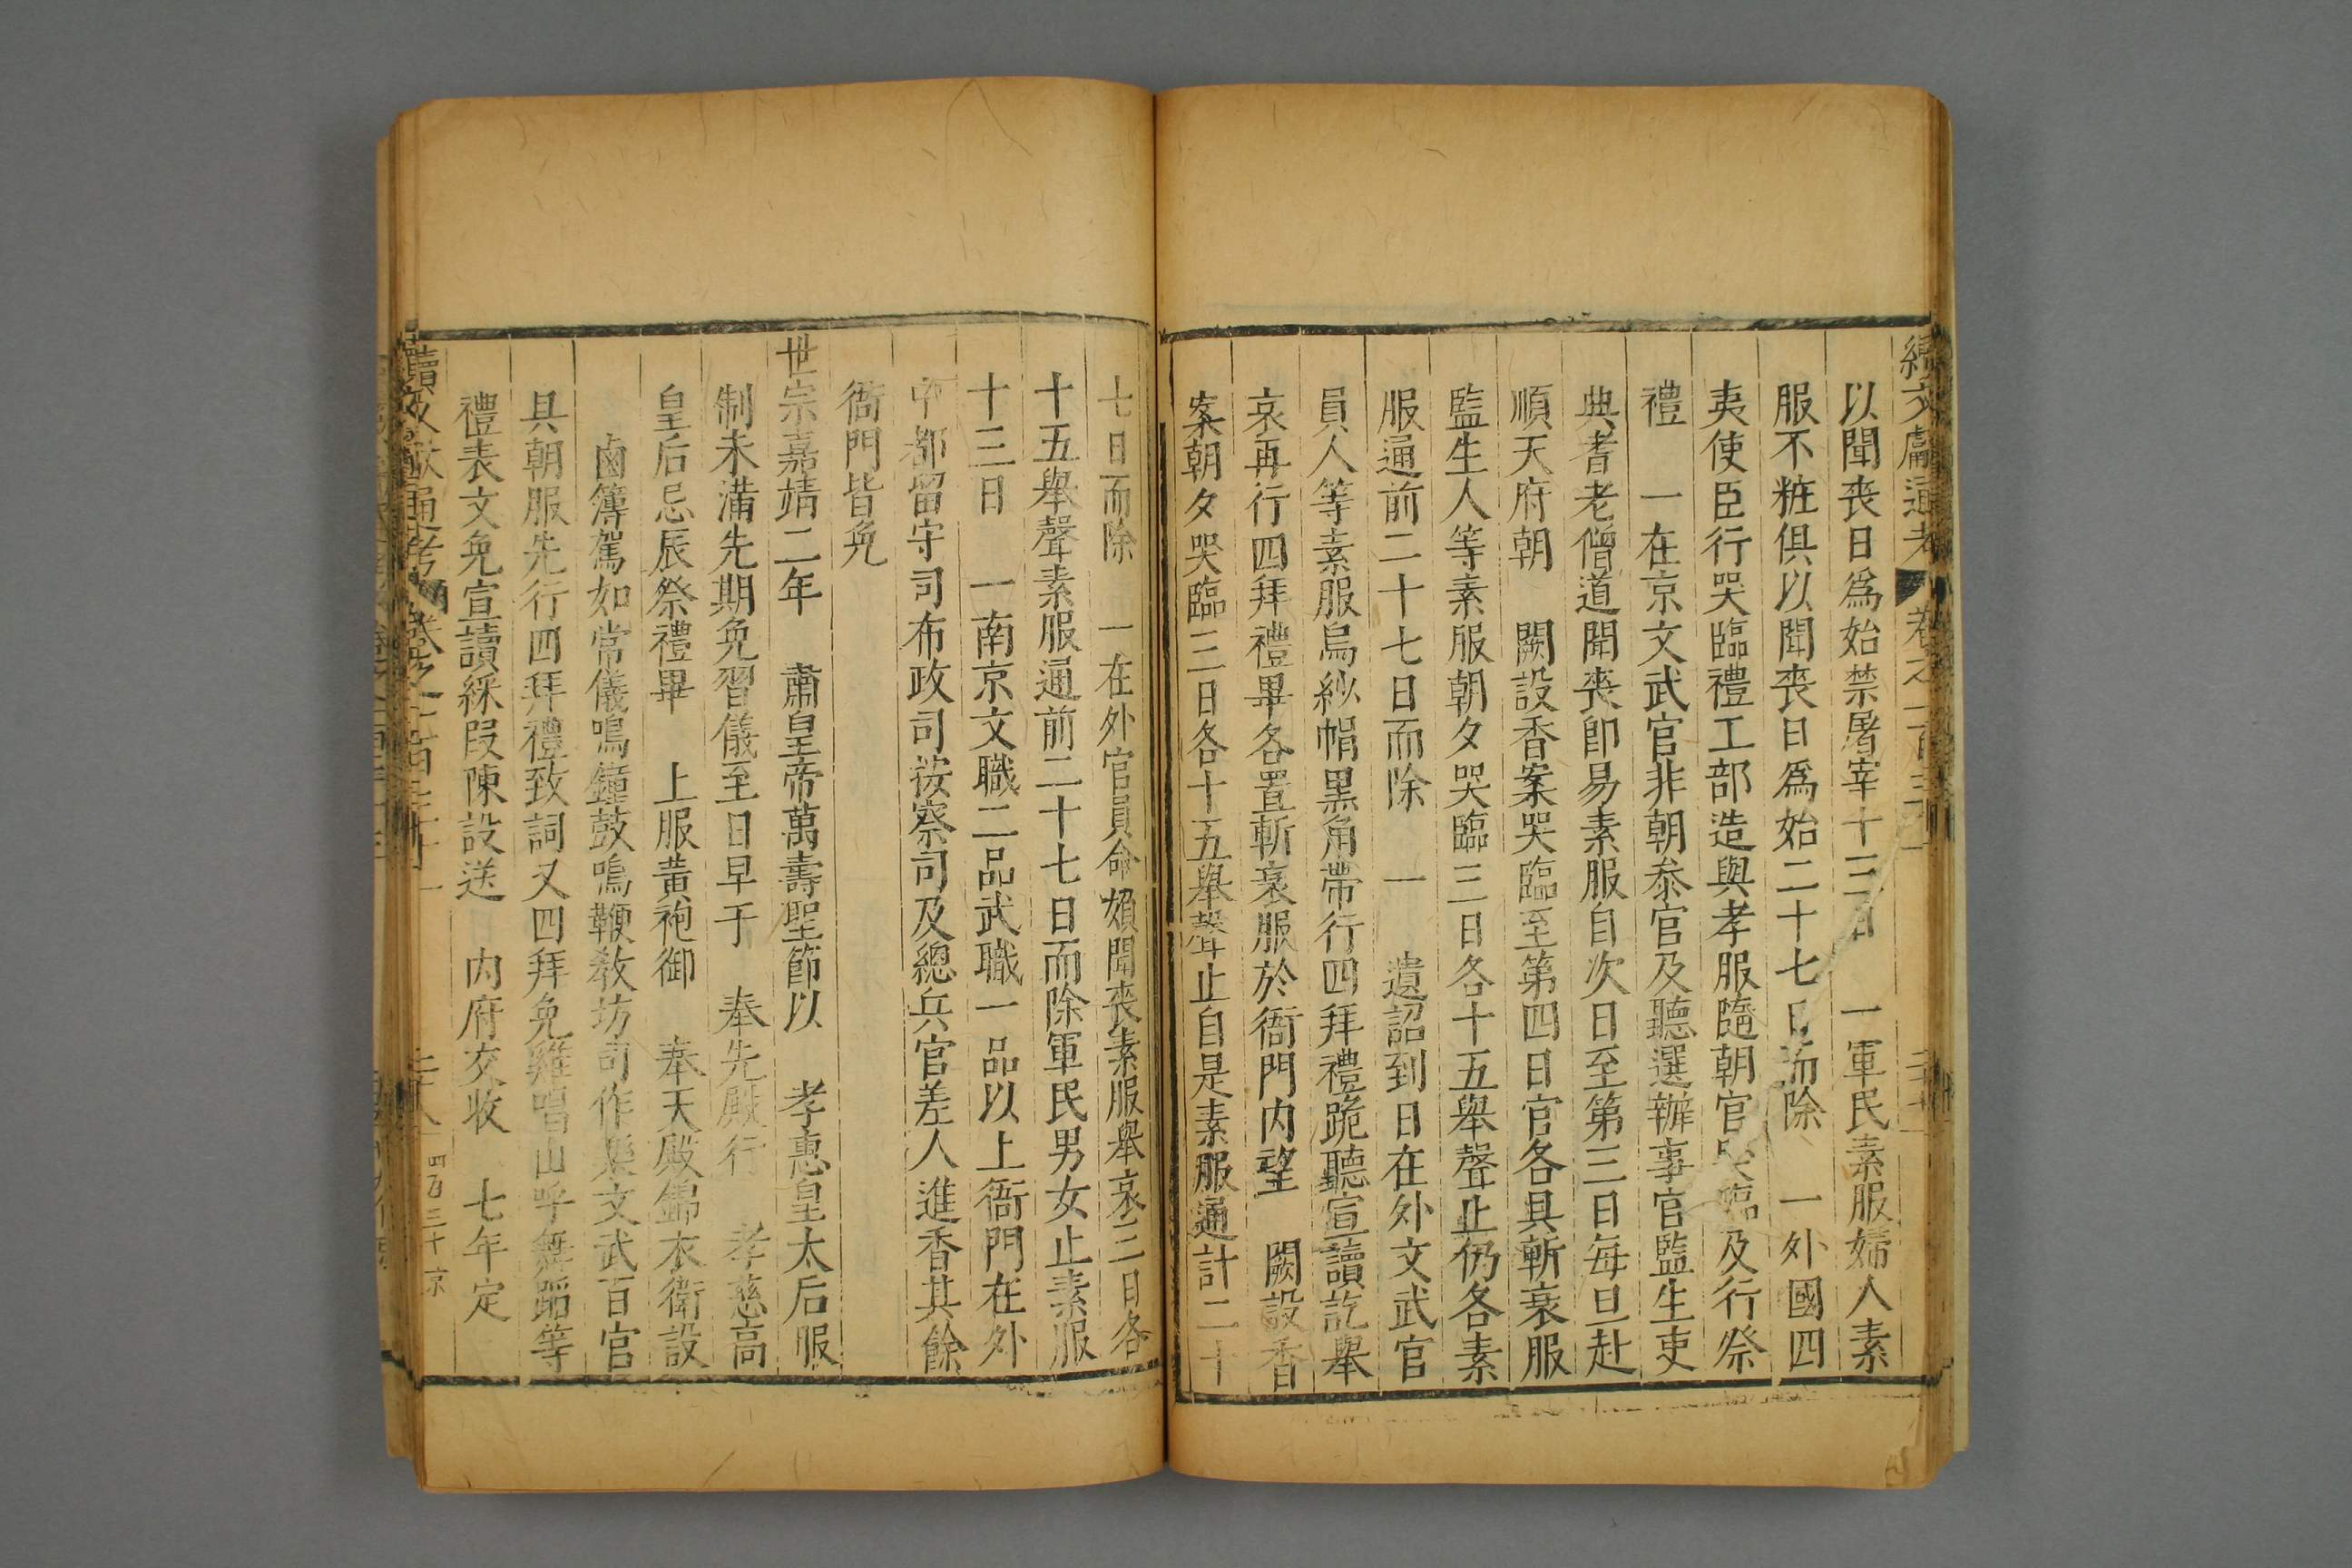 續文獻通考 卷之一百三十一
以聞喪日爲始禁屠宰十三日 一軍民素服婦人素
服不粧俱以聞喪日爲始二十七日而除 一外國四
夷使臣行哭臨禮工部造與孝服隨朝官哭臨及行祭
禮 一在京文武官非朝叅官及聽選辦事官監生吏
典耆老僧道聞喪卽易素服自次日至第三日每旦赴
順天府朝 闕設香案哭臨至第四日官各具斬衰服
監生人等素服朝夕哭臨三日各十五舉聲止仍各素
服通前二十七日而除 一 遺詔到日在外文武官
員人等素服烏紗帽黑角帶行四拜禮跪聽宣讀訖舉
哀再行四拜禮畢各置斬衰服於衙門内望 闕設香
案朝夕哭臨三日各十五舉聲止自是素服通計二十
七日而除 一在外官員命婦聞喪素服舉哀三日各
十五舉聲素服通前二十七日而除軍民男女止素服
十三日 一南京文職二品武職一品以上衙門在外
中都留守司布政司按察司及總兵官差人進香其餘
衙門皆免
世宗嘉靖二年 肅皇帝萬壽聖節以 孝惠皇太后服
制未滿先期免習儀至日早于 奉先殿行 孝慈高
皇后忌辰祭禮畢 上服黃袍御 奉天殿錦衣衛設
鹵簿駕如常儀鳴鐘鼓鳴鞭敎坊司作樂文武百官
具朝服先行四拜禮致詞又四拜免雞唱山呼舞蹈等
禮表文免宣讀綵叚陳設送 内府交收 七年定
續文獻通考 卷之一百三十一 二十八 四百三十